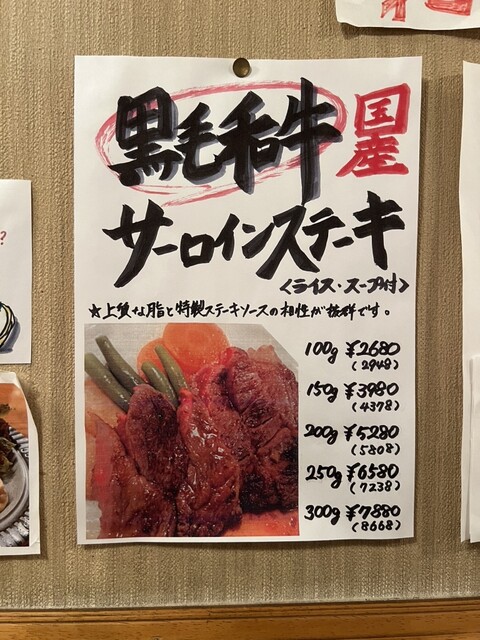 黒毛和牛 国産
サーロインステーキ
<ライス・スープ付>
★上質な脂と特製ステーキソースの相性が抜群です。
100g ¥2680
(2948)
150g ¥3980
(4378)
200g ¥5280
(5808)
250g ¥6580
(7238)
300g ¥7880
(8668)
?